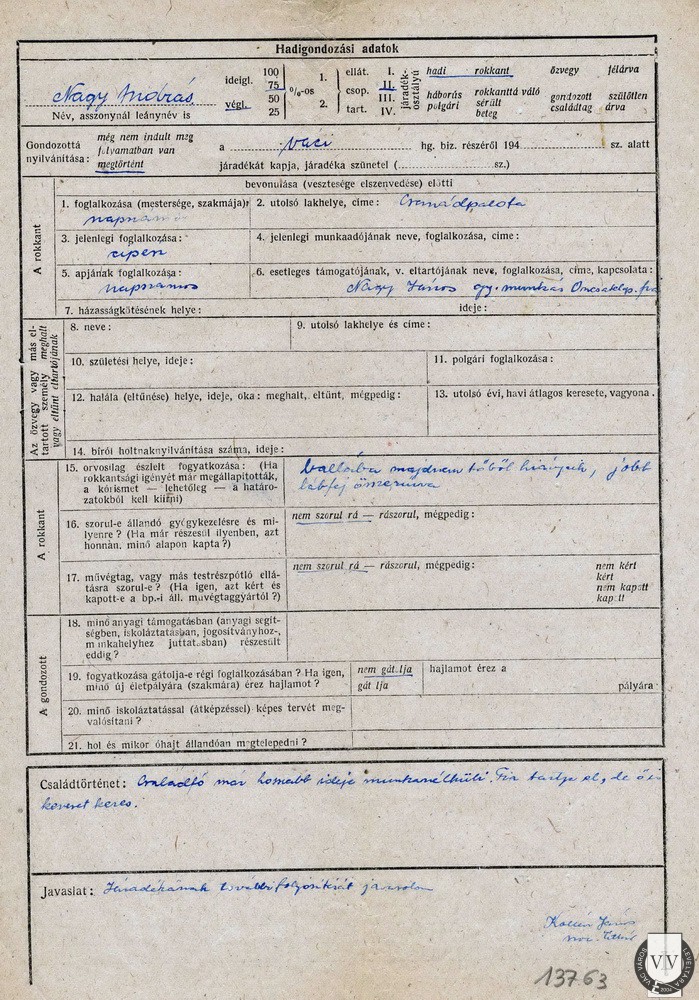 Hadigondozási adatok
Nagy András
Név, asszonynál leánynév is
ideigl. végl. 100 75 50 25 %-os 1. 2.
ellát. csop. tart. I. II. III. IV.
járadék-osztályú
hadi rokkant özvegy félárva
háborús rokkanttá váló gondozott szülőtlen
polgári sérült családtag árva
beteg
Gondozottá nyilvánítása:
még nem indult meg
folyamatban van
megtörtént
a váci hg. biz. részéről 194 sz. alatt
járadékát kapja, járadéka szünetel ( sz.)
A rokkant
bevonulása (vesztesége elszenvedése) előtti
1. foglalkozása (mestersége, szakmája):
napszámos
2. utolsó lakhelye, címe: Csanádpalota
3. jelenlegi foglalkozása:
4. jelenlegi munkaadójának neve, foglalkozása, címe:
5. apjának foglalkozása:
napszámos
6. esetleges támogatójának, v. eltartójának neve, foglalkozása, címe, kapcsolata:
Nagy János gy. munkás
7. házasságkötésének helye: ideje:
Az özvegy vagy más eltartott személy meghalt vagy eltünt eltartójának
8. neve:
9. utolsó lakhelye és címe:
10. születési helye, ideje:
11. polgári foglalkozása:
12. halála (eltűnése) helye, ideje, oka: meghalt, eltünt, mégpedig:
13. utolsó évi, havi átlagos keresete, vagyona.
14. bírói holtnaknyilvánítása száma, ideje:
A rokkant
15. orvosilag észlelt fogyatkozása: (Ha
rokkantsági igényét már megállapították,
a kórismét — lehetőleg — a határo-
zatokból kell kiírni)
ballába majdnem tőből hiányzik, jobb
lábfej
16. szorul-e állandó gyógykezelésre és mi-
lyenre? (Ha már részesül ilyenben, azt
honnan, minő alapon kapta?)
nem szorul rá — rászorul, mégpedig:
17. művégtag, vagy más testrészpótló ellá-
tásra szorul-e? (Ha igen, azt kért és
kapott-e a bp.-i áll. művégtaggyártól?)
nem szorul rá — rászorul, mégpedig:
nem kért
kért
nem kapott
kapott
A gondozott
18. minő anyagi támogatásban (anyagi segít-
ségben, iskoláztatásban, jogosítványhoz-,
munkahelyhez juttatásban) részesült
eddig?
19. fogyatkozása gátolja-e régi foglalkozásában? Ha igen,
minő új életpályára (szakmára) érez hajlamot?
nem gátolja
gátolja
hajlamot érez a
pályára
20. minő iskoláztatással (átképzéssel) képes tervét meg-
valósítani?
21. hol és mikor óhajt állandóan megtelepedni?
Családtörténet: Családfő már hosszabb ideje munkanélküli. Fia tartja el, de ő is
keveset keres.
Javaslat: Járadékának további folyósítását javaslom
János
13763
VÁC VÁROS LEVÉLTÁRA
VV